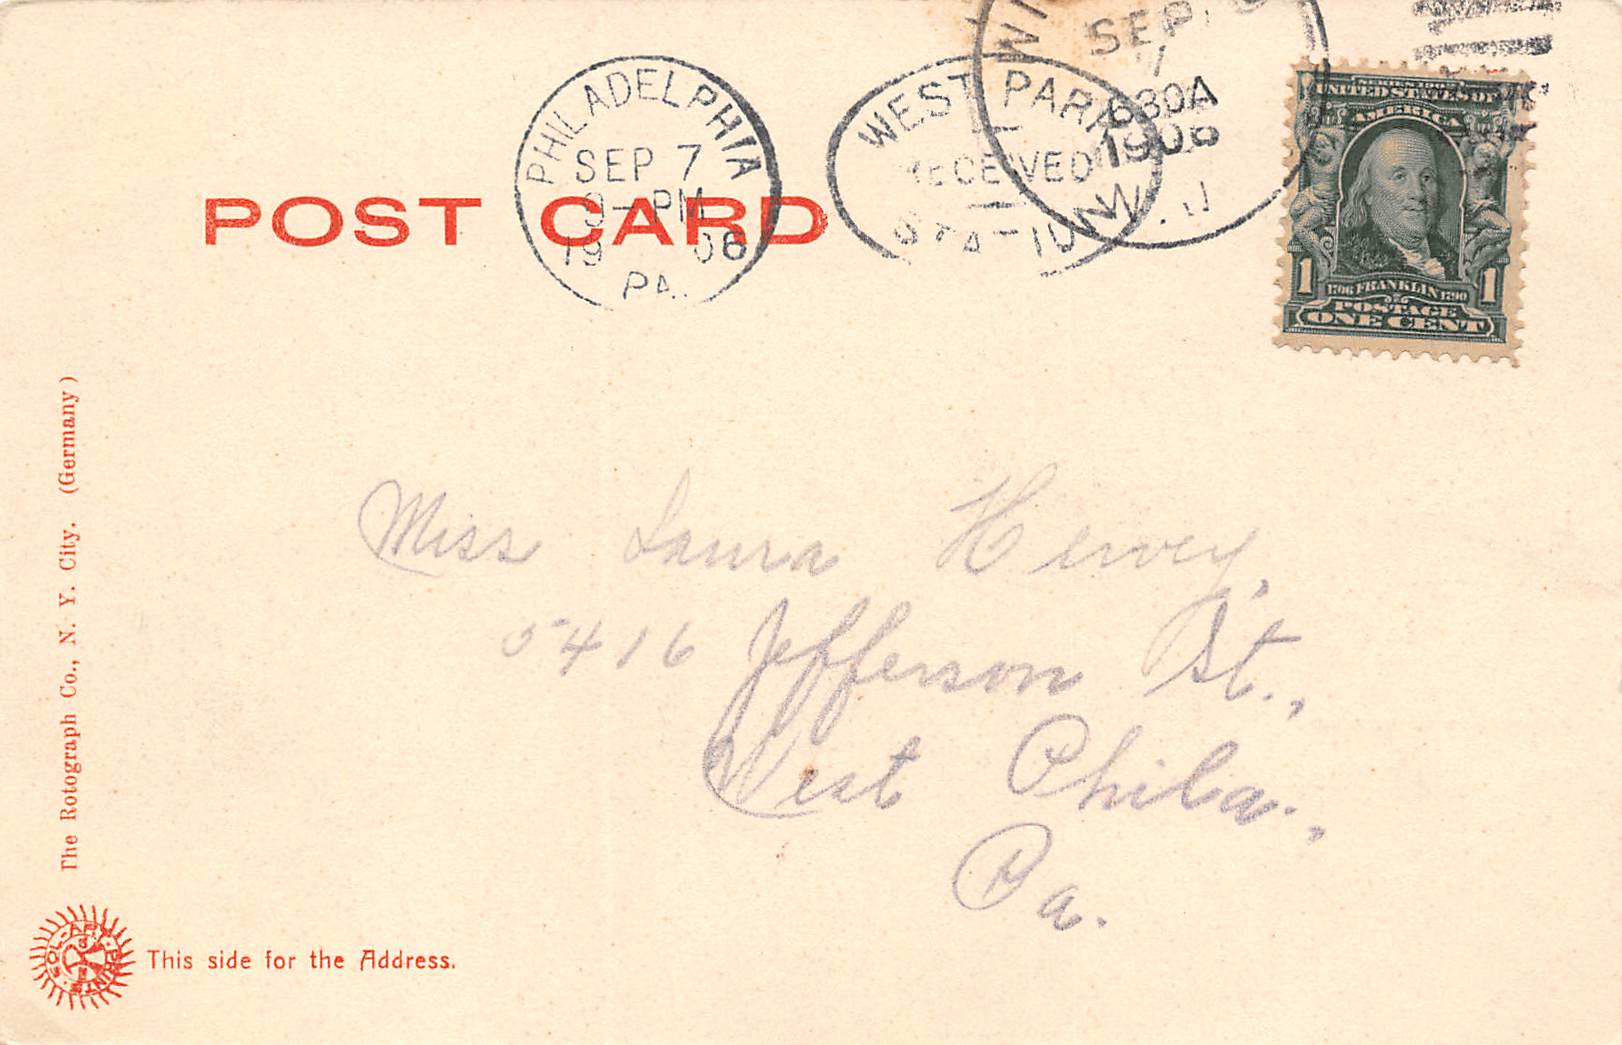 POST CARD
PHILADELPHIA
SEP 7
9-PM
1906
PA.
WEST PARK
RECEIVED
STATION
SEP.
630A
1906
N.J.
UNITED STATES OF
AMERICA
1 1
1706 FRANKLIN 1790
POSTAGE
ONE CENT
Miss Laura Hervey,
5416 Jefferson St.,
West Phila.,
Pa.
The Rotograph Co., N. Y. City. (Germany)
SOL-ART PRINTS
This side for the Address.